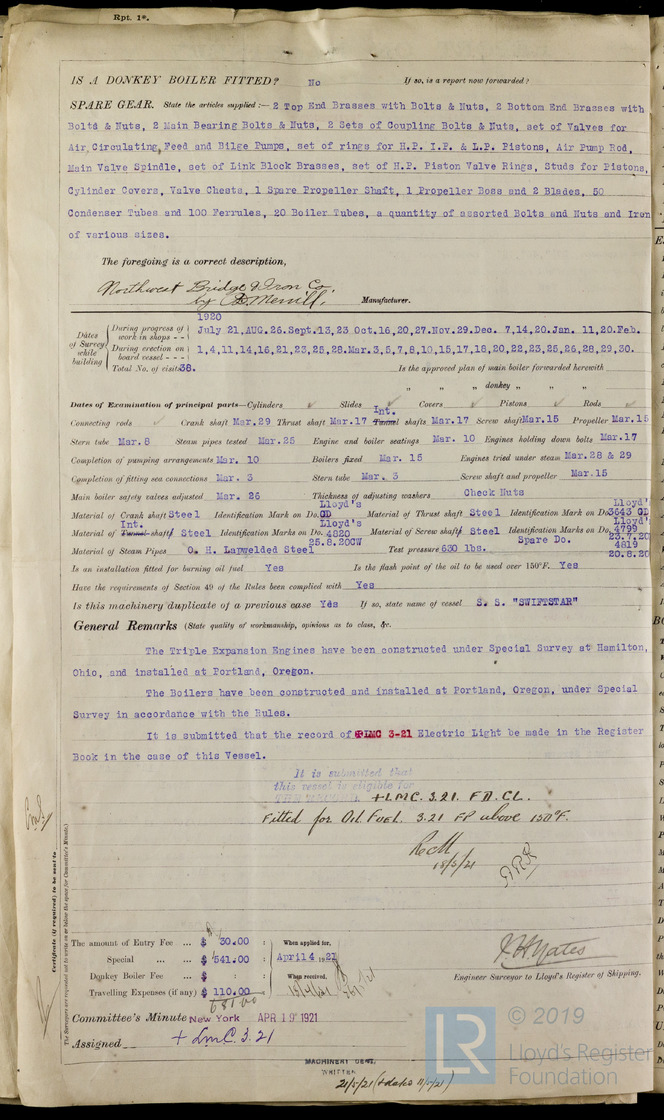 Rpt. 1*.
IS A DONKEY BOILER FITTED? No If so, is a report now forwarded?
SPARE GEAR. State the articles supplied:— 2 Top End Brasses with Bolts & Nuts, 2 Bottom End Brasses with
Boltd & Nuts, 2 Main Bearing Bolts & Nuts, 2 Sets of Coupling Bolts & Nuts, set of Valves for
Air, Circulating, Feed and Bilge Pumps, set of rings for H.P. I.P. & L.P. Pistons, Air Pump Rod,
Main Valve Spindle, set of Link Block Brasses, set of H.P. Piston Valve Rings, Studs for Pistons,
Cylinder Covers, Valve Chests, 1 Spare Propeller Shaft, 1 Propeller Boss and 2 Blades, 50
Condenser Tubes and 100 Ferrules, 20 Boiler Tubes, a quantity of assorted Bolts and Nuts and Iron
of various sizes.
The foregoing is a correct description,
Northwest Bridge & Iron Co.
by Merrill. Manufacturer.
1920
Dates of Survey while building
During progress of work in shops - - July 21, AUG.26.Sept.13,23 Oct.16,20,27.Nov.29.Dec. 7,14,20.Jan. 11,20.Feb.
During erection on board vessel - - - 1,4,11,14,16,21,23,25,28.Mar.3,5,7,8,10,15,17,18,20,22,23,25,26,28,29,30.
Total No. of visits 38. Is the approved plan of main boiler forwarded herewith
" " " donkey " " "
Dates of Examination of principal parts—Cylinders ✓ Slides ✓ Covers ✓ Pistons ✓ Rods ✓
Int.
Connecting rods ✓ Crank shaft Mar.29 Thrust shaft Mar.17 Tunnel shafts Mar.17 Screw shaft Mar.15 Propeller Mar.15
Stern tube Mar.8 Steam pipes tested Mar.25 Engine and boiler seatings Mar. 10 Engines holding down bolts Mar.17
Completion of pumping arrangements Mar. 10 Boilers fixed Mar. 15 Engines tried under steam Mar.28 & 29
Completion of fitting sea connections Mar. 3 Stern tube Mar. 3 Screw shaft and propeller Mar.15
Main boiler safety valves adjusted Mar. 26 Thickness of adjusting washers Check Nuts
Lloyd's Lloyd'
Material of Crank shaft Steel Identification Mark on Do. GD Material of Thrust shaft Steel Identification Mark on Do. 3643 GD
Int. Lloyd's Lloyd'
Material of Tunnel shafts Steel Identification Marks on Do. 4820 Material of Screw shafts Steel Identification Marks on Do. 4799
25.8.20GW Spare Do. 23.7.20
4819
Material of Steam Pipes O. H. Lapwelded Steel Test pressure 630 lbs. 20.8.20
Is an installation fitted for burning oil fuel Yes Is the flash point of the oil to be used over 150°F. Yes
Have the requirements of Section 49 of the Rules been complied with Yes
Is this machinery duplicate of a previous case Yes If so, state name of vessel S. S. "SWIFTSTAR"
General Remarks (State quality of workmanship, opinions as to class, &c.
The Triple Expansion Engines have been constructed under Special Survey at Hamilton,
Ohio, and installed at Portland, Oregon.
The Boilers have been constructed and installed at Portland, Oregon, under Special
Survey in accordance with the Rules.
It is submitted that the record of +LMC 3-21 Electric Light be made in the Register
Book in the case of this Vessel.
It is submitted that
this vessel is eligible for
THE RECORD. +LMC. 3.21. FD. CL.
Fitted for Oil Fuel. 3.21 FP above 150°F.
18/5/21
Certificate (if required) to be sent to
The Surveyors are requested not to write on or below the space for Committee's Minute.
The amount of Entry Fee ... $ 30.00 : When applied for,
Special ... ... $ 541.00 : April 4 1921
Donkey Boiler Fee ... $ : : When received,
Travelling Expenses (if any) $ 110.00 :
681.00
Engineer Surveyor to Lloyd's Register of Shipping.
Committee's Minute New York APR 19 1921
Assigned + LMC. 3.21
MACHINERY CERT.
WRITTEN
21/5/21 (+Idaho 11/5/21)
LR
© 2019
Lloyd's Register
Foundation